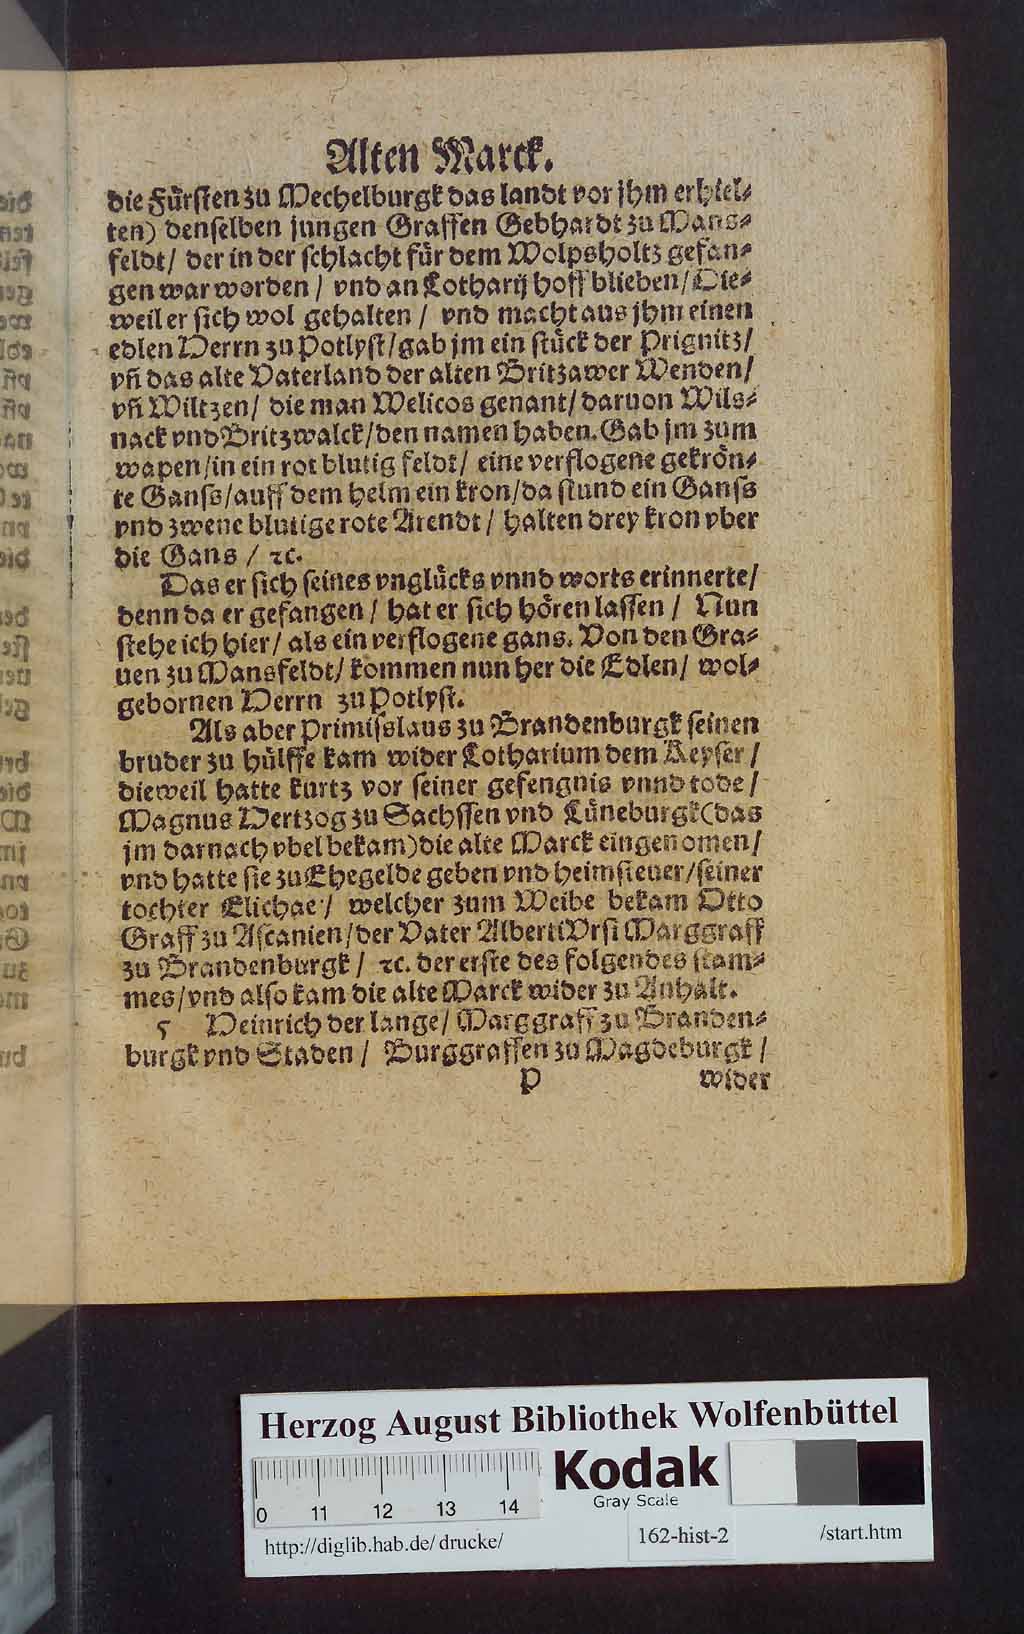 Alten Marck.
die Fürsten zu Mechelburgk das landt vor jhm erhiel⸗
ten) denselben jungen Graffen Gebhardt zu Mans⸗
feldt/ der in der schlacht für dem Wolpsholtz gefan⸗
gen war worden / vnd an Lotharij hoff blieben/ Die⸗
weil er sich wol gehalten / vnd macht aus jhm einen
edlen Herrn zu Potlyst/ gab jm ein stück der Prignitz/
vñ das alte Vaterland der alten Britzawer Wenden/
vñ Wiltzen/ die man Welicos genant/ daruon Wils⸗
nack vnd Britzwalck/ den namen haben. Gab jm zum
wapen/ in ein rot blutig feldt/ eine verflogene gekrön⸗
te Ganss/ auff dem helm ein kron/ da stund ein Ganss
vnd zwene blutige rote Arendt / halten drey kron vber
die Gans / ꝛc.
Das er sich seines vnglücks vnnd worts erinnerte/
denn da er gefangen / hat er sich hören lassen / Nun
stehe ich hier/ als ein verflogene gans. Von den Gra⸗
uen zu Mansfeldt/ kommen nun her die Edlen/ wol⸗
gebornen Herrn zu Potlyst.
Als aber Primisslaus zu Brandenburgk seinen
bruder zu hülffe kam wider Lotharium dem Keyser /
dieweil hatte kurtz vor seiner gefengnis vnnd tode /
Magnus Hertzog zu Sachssen vnd Lüneburgk (das
jm darnach vbel bekam) die alte Marck eingenomen/
vnd hatte sie zu Ehegelde geben vnd heimsteuer/ seiner
tochter Elichae / welcher zum Weibe bekam Otto
Graff zu Ascanien/ der Vater Alberti Vrsi Marggraff
zu Brandenburgk / ꝛc. der erste des folgendes stam⸗
mes/ vnd also kam die alte Marck wider zu Anhalt.
5 Heinrich der lange/ Marggraff zu Branden⸗
burgk vnd Staden / Burggraffen zu Magdeburgk /
P wider
Herzog August Bibliothek Wolfenbüttel
0 11 12 13 14
Kodak
Gray Scale
http://diglib.hab.de/ drucke/ 162-hist-2 /start.htm